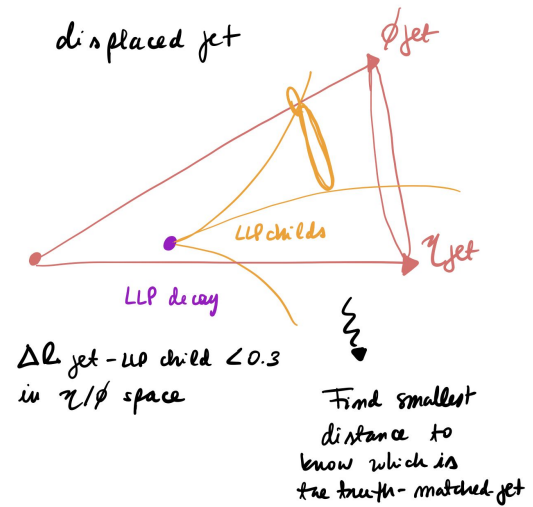 displaced jet
ϕ jet
LLP childs
η jet
LLP decay
ΔR jet-LLP child <0.3
in η/ϕ space
Find smallest
distance to
know which is
the truth-matched-jet